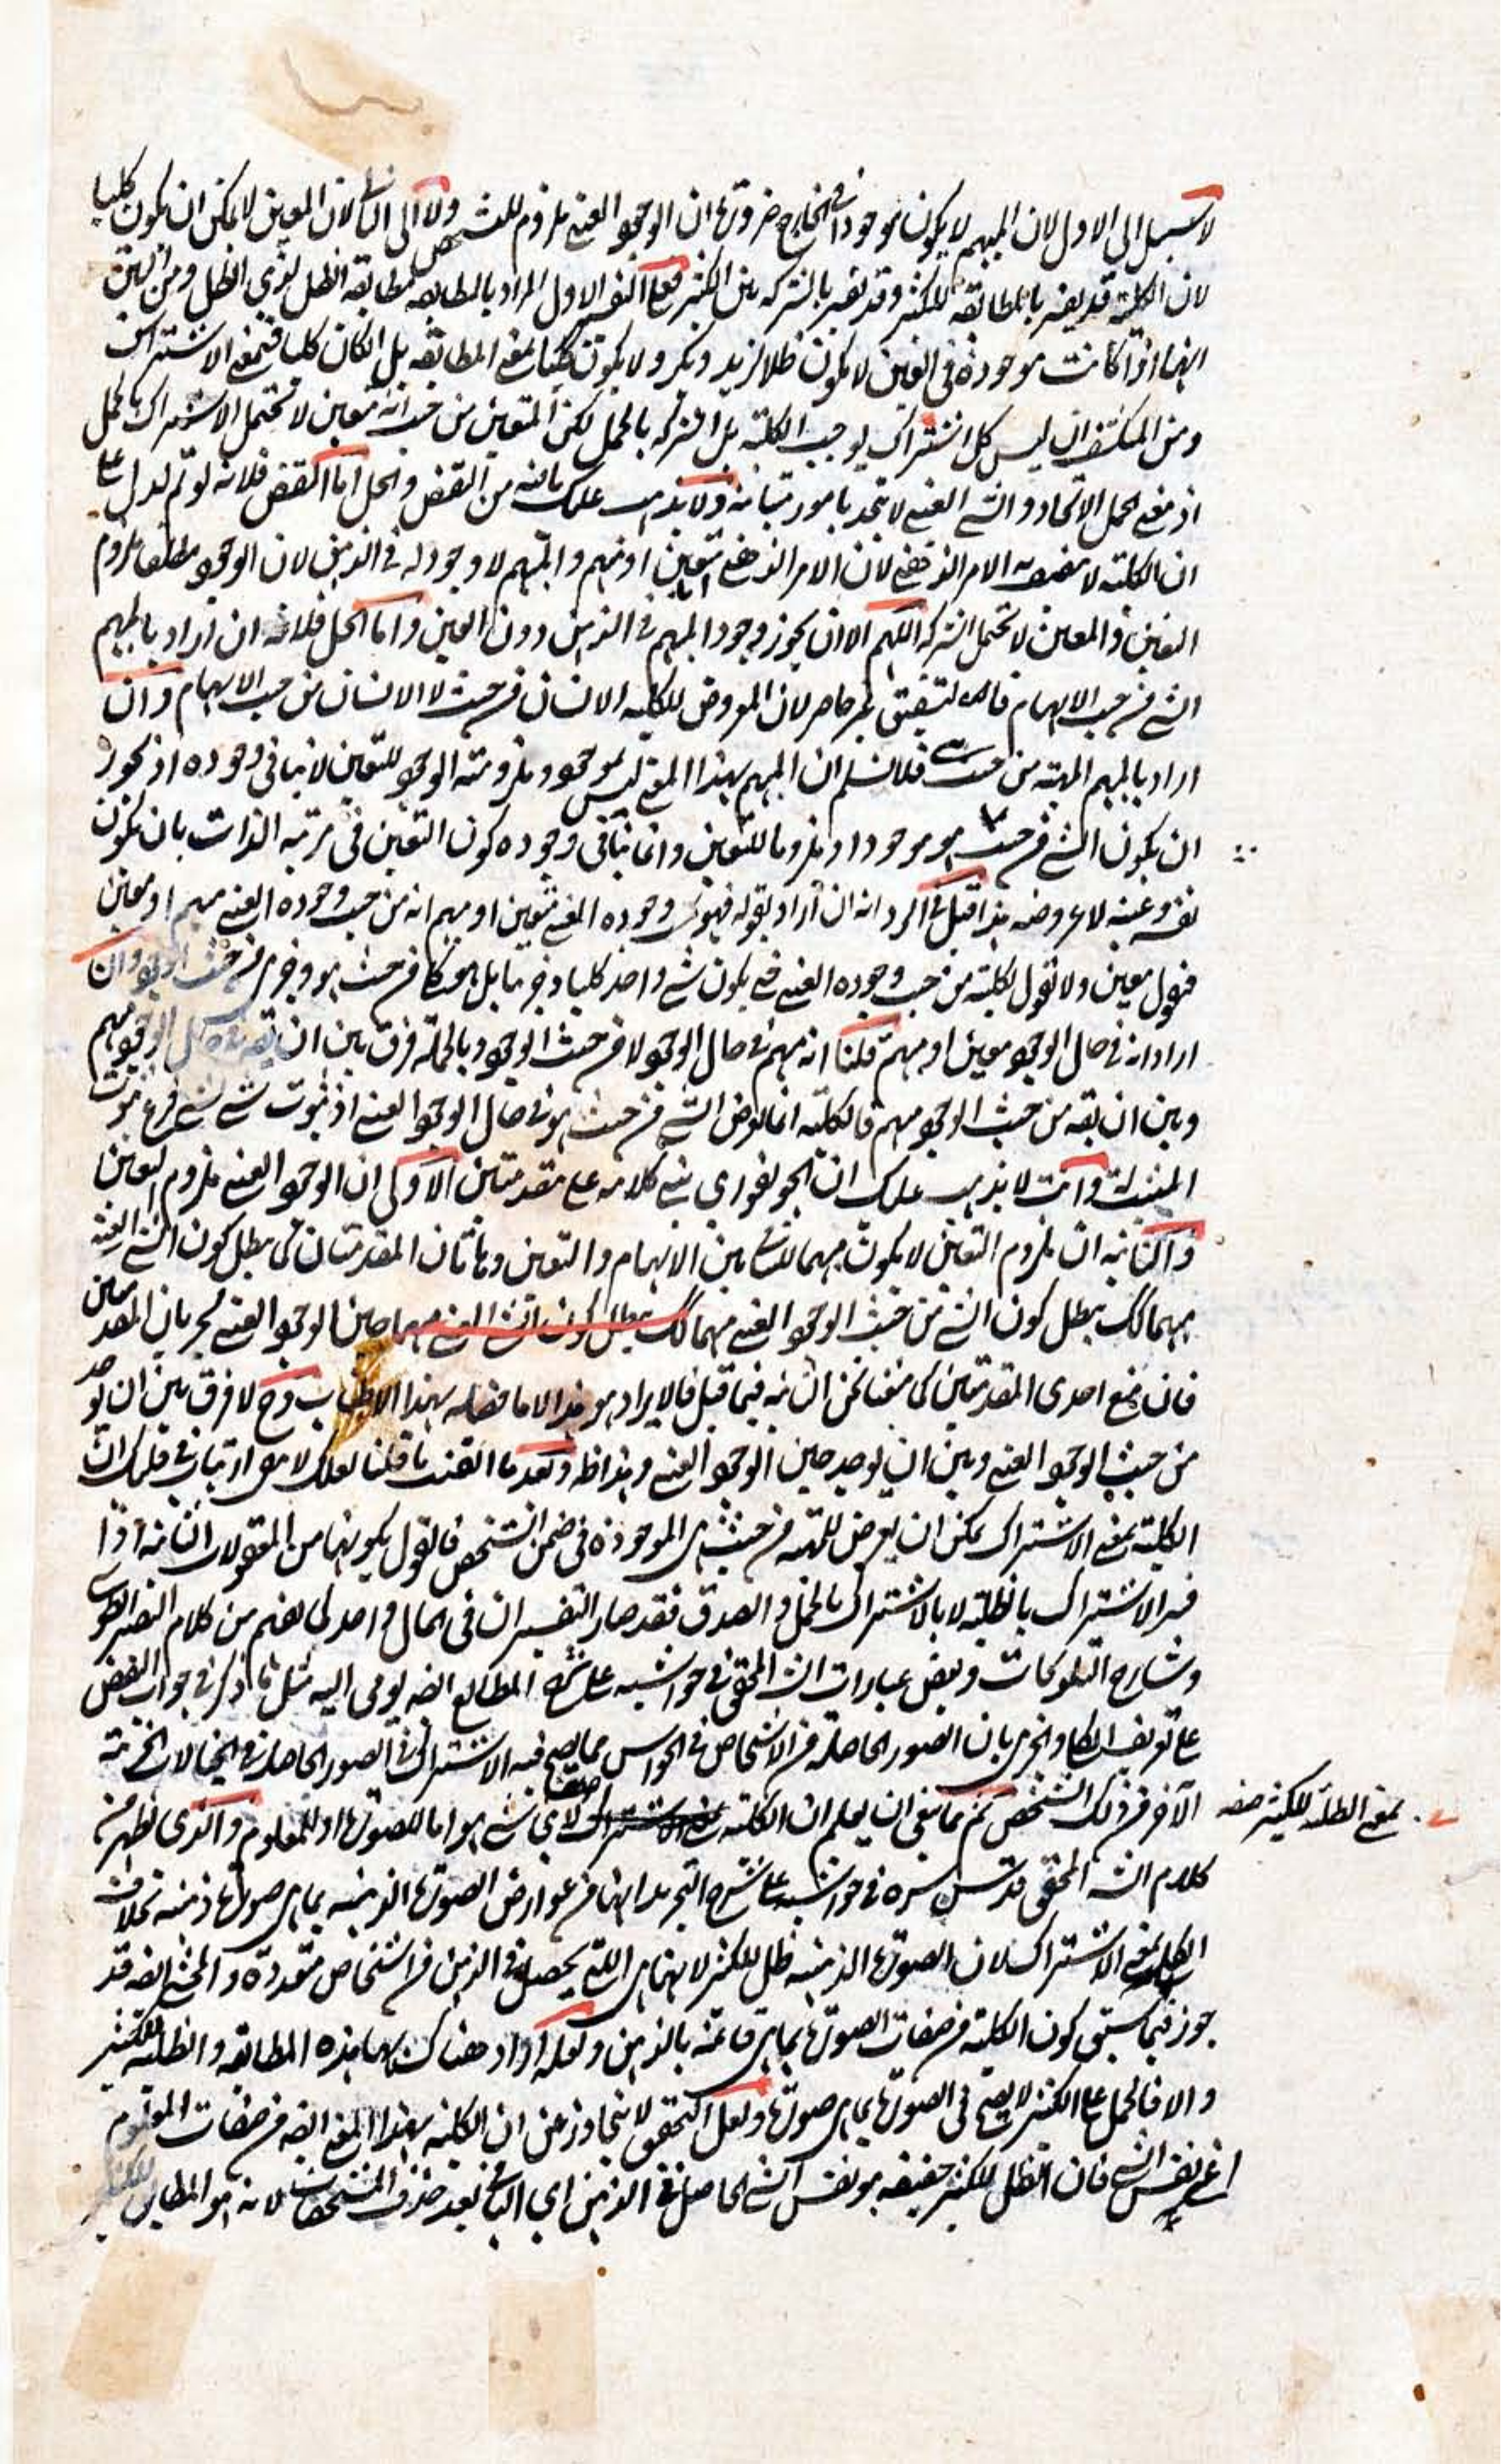 لا سبيل الى الاول لان المبهم لا يكون موجودا فى الخارج ضرورة ان الوجود العينى ملزوم للتشخص ولا الى الثانى لان المعين لا يمكن ان يكون كليا
لان الكلية قد يفسر بالمطابقة للكثير وقد يفسر بالشركة بين الكثير فعلى التفسير الاول المراد بالمطابقة مطابقة الظل لذى الظل ومن البين
انها اذا كانت موجودة فى العين لا يكون ظلا لزيد وبكر ولا يكون كليا بمعنى المطابقة بل الكان كليا فبمعنى الاشتراك
ومن المكشف ان ليس كل اشتراك يوجب الكلية بل الشركة بالحمل لكن المتعين من حيث انه متعين لا تحتمل الاشتراك بالحمل
اذ معنى الحمل الاتحاد والشئ العينى لا يتحد بامور متباينة ولا يذهب عليك ما فيه من النقض والحل اما النقض فلانه لو تم لدل على
ان الكلية لا يتصف به الامر الذهنى لان الامر الذهنى اما متعين او مبهم والمبهم لا وجود له فى الذهن لان الوجود مطلقا ملزوم
التعين والمعين لا تحتمل الشركة اللهم الا ان يجوز وجود المبهم فى الذهن دون العين واما الحل فلانه ان اراد بالمبهم
الشئ من حيث الابهام فالتشقيق غير حاصر لان المعروض للكلية الانسان من حيث لا الانسان من حيث الابهام وان
اراد بالمبهم المهية من حيث هى فلا نسلم ان المبهم بهذا المعنى ليس بموجود وملزومية الوجود للتعين لا ينافى وجوده اذ يجوز
ان يكون الشئ من حيث هو موجودا وملزوما للتعين وانما ينافى وجوده كون التعين فى مرتبة الذات بان يكون
نفسه وعينه لا عروضه هذا قيل فى الرد انه ان اراد بقوله فهو فى وجوده العينى متعين او مبهم انه من حيث وجوده العينى مبهم او معين
فنقول معين ولا نقول لكلية من حيث وجوده العينى فى يكون شئ واحد كليا وجزئيا بل من حيث هو وجزئى من حيث الوجود وان
اراد انه فى حال الوجود معين او مبهم قلنا انه مبهم فى حال الوجود لا من حيث الوجود وبالجملة فرق بين ان يقه فى حال الوجود مبهم
وبين ان يقه من حيث الوجود مبهم فالكلية انما تعرض الشئ من حيث هو فى حال الوجود العينى اذ ثبوت شئ لشئ فرع ثبوت
المثبت له وانت لا يذهب عليك ان الجونفورى بنى كلامه على مقدمتين الاولى ان الوجود العينى ملزوم التعين
والثانية ان ملزوم التعين لا يكون مبهما للتنافى بين الابهام والتعين وهاتان المقدمتان كما يبطل كون الشئ العينى
مبهما كك يبطل كون الشئ من حيث الوجود العينى مبهما كك يبطل كون الشئ العينى مبهما حين الوجود العينى لجريان المقدمتين
فان منع احدى المقدمتين كما منعنا نحن الثانية فيما قبل فالايراد هو هذا لا ما فصله بهذا الاطناب وح لا فرق بين ان يوجد
من حيث الوجود العينى وبين ان يوجد حين الوجود العينى وهذا ظ وبعد ما اتقنت ما قلنا لعلك لا مرى ارتياب فى قلبك ان
الكلية بمعنى الاشتراك يمكن ان يعرض للمهية من حيث هى الموجودة فى ضمن الشخص فالقول بكونها من المعقولات الثانية اذا
فسر الاشتراك بالظلية لا بالاشتراك بالحمل والصدق فقد صار التفسيران فى المال واحد كما يفهم من كلام النصير الطوسى
وشارح التلويحات وبعض عبارات الش المحقق فى حواشيه على شرح المطالع ايضه يومى اليه مثل ما ذكر فى جواب النقض
على تعريف الكلى والجزئى بان الصور الحاصلة من الاشخاص فى الحواس مما يصح فيه الاشتراك فى الصور الحاصلة فى الخيالات الجزئية
الآخر من ذلك الشخص ثم مما ينبغى ان يعلم ان الكلية صفة لاى شئ هو اما للصورة او للمعلوم والذى يظهر من
بمعنى الظلية للكثير صفه
كلام الش المحقق قدس سره فى حواشيه على شرح التجريد انها من عوارض الصورة الذهنية بما هى صورة ذهنية بخلاف
الكلى بمعنى الاشتراك لان الصورة الذهنية ظل للكثير لانها هى التى يحصل فى الذهن من اشخاص متعددة والمحشى ايضه قد
جوز فيما سبق كون الكلية من صفات الصورة بما هى قائمة بالذهن ولعله اراد هناك بها هذه المطابقة والظلية للكثير
والا فالحمل على الكثير لا يصح فى الصورة بما هى صورة ولعل التحقيق لا يتجاوز عن ان الكلية بهذا المعنى ايضه من صفات المعلوم
اعنى نفس الشئ فان الظل للكثير حقيقة هو نفس الشئ الحاصل فى الذهن اى الباقى بعد حذف المشخصات لانه هو المطابق للكثير